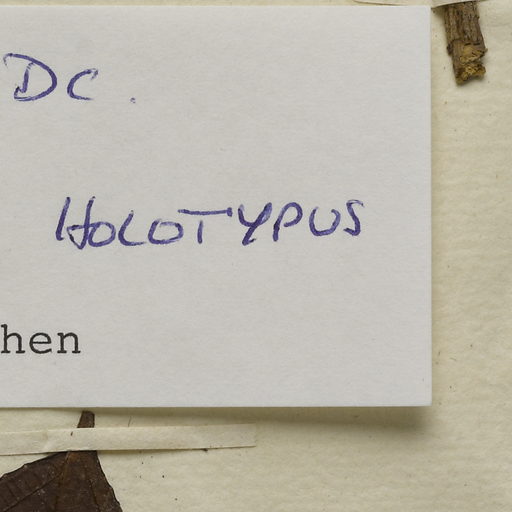 DC.
HOLOTYPUS
hen